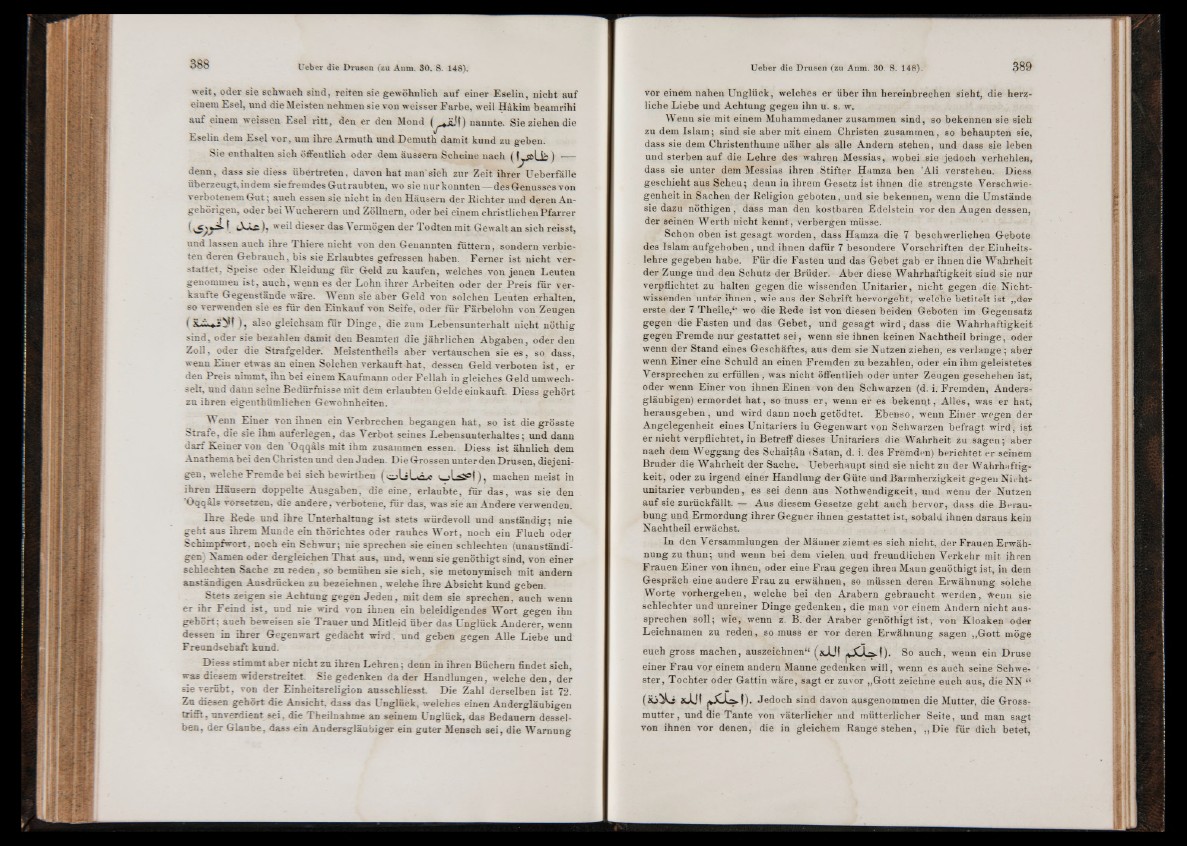 388
Ueber die Drusen (zu Anm. 30. S. 148).
weit, oder sie schwach sind, reiten sie gewöhnlich auf einer Eselin, nicht auf
einem Esel, und die Meisten nehmen sie von weisser Farbe, weil Ḥâkim beamrihi
auf einem weissen Esel ritt, den er den Mond (القمر) nannte. Sie ziehen die
Eselin dem Esel vor, um ihre Armuth und Demuth damit kund zu geben.
Sie enthalten sich öffentlich oder dem äussern Scheine nach (ظاهرا) —
denn, dass sie diess übertreten, davon hat man sich zur Zeit ihrer Ueberfälle
überzeugt, indem sie fremdes Gut raubten, wo sie nur konnten — des Genusses von
verbotenem Gut; auch essen sie nicht in den Häusern der Richter und deren An-
gehörigen, oder bei Wucherern und Zöllnern, oder bei einem christlichen Pfarrer
(عند الخورى), weil dieser das Vermögen der Todten mit Gewalt an sich reisst,
und lassen auch ihre Thiere nicht von den Genannten füttern, sondern verbie-
ten deren Gebrauch, bis sie Erlaubtes gefressen haben. Ferner ist nicht ver-
stattet, Speise oder Kleidung für Geld zu kaufen, welches von jenen Leuten
genommen ist, auch, wenn es der Lohn ihrer Arbeiten oder der Preis für ver-
kaufte Gegenstände wäre. Wenn sie aber Geld von solchen Leuten erhalten,
so verwenden sie es für den Einkauf von Seife, oder für Färbelohn von Zeugen
(الاقمشة), also gleichsam für Dinge, die zum Lebensunterhalt nicht nöthig
sind, oder sie bezahlen damit den Beamten die jährlichen Abgaben, oder den
Zoll, oder die Strafgelder. Meistentheils aber vertauschen sie es, so dass,
wenn Einer etwas an einen Solchen verkauft hat, dessen Geld verboten ist, er
den Preis nimmt, ihn bei einem Kaufmann oder Fellah in gleiches Geld umwech-
selt, und dann seine Bedürfnisse mit dem erlaubten Gelde einkauft. Diess gehört
zu ihren eigenthümlichen Gewohnheiten.
Wenn Einer von ihnen ein Verbrechen begangen hat, so ist die grösste
Strafe, die sie ihm auferlegen, das Verbot seines Lebensunterhaltes; und dann
darf Keiner von den 'Oqqâls mit ihm zusammen essen. Diess ist ähnlich dem
Anathema bei den Christen und den Juden. Die Grossen unter den Drusen, diejeni-
gen, welche Fremde bei sich bewirthen (اصحاب مضافات), machen meist in
ihren Häusern doppelte Ausgaben, die eine, erlaubte, für das, was sie den
'Oqqâls vorsetzen, die andere, verbotene, für das, was sie an Andere verwenden.
Ihre Rede und ihre Unterhaltung ist stets würdevoll und anständig; nie
geht aus ihrem Munde ein thörichtes oder rauhes Wort, noch ein Fluch oder
Schimpfwort, noch ein Schwur; nie sprechen sie einen schlechten (unanständi-
gen) Namen oder dergleichen That aus, und, wenn sie genöthigt sind, von einer
schlechten Sache zu reden, so bemühen sie sich, sie metonymisch mit andern
anständigen Ausdrücken zu bezeichnen, welche ihre Absicht kund geben.
Stets zeigen sie Achtung gegen Jeden, mit dem sie sprechen, auch wenn
er ihr Feind ist, und nie wird von ihnen ein beleidigendes Wort gegen ihn
gehört; auch beweisen sie Trauer und Mitleid über das Unglück Anderer, wenn
dessen in ihrer Gegenwart gedacht wird, und geben gegen Alle Liebe und
Freundschaft kund.
Diess stimmt aber nicht zu ihren Lehren; denn in ihren Büchern findet sich,
was diesem widerstreitet. Sie gedenken da der Handlungen, welche den, der
sie verübt, von der Einheitsreligion ausschliesst. Die Zahl derselben ist 72.
Zu diesen gehört die Ansicht, dass das Unglück, welches einen Andergläubigen
trifft, unverdient sei, die Theilnahme an seinem Unglück, das Bedauern dessel-
ben, der Glaube, dass ein Andersgläubiger ein guter Mensch sei, die Warnung
Ueber die Drusen (zu Anm. 30. S. 148).
389
vor einem nahen Unglück, welches er über ihn hereinbrechen sieht, die herz-
liche Liebe und Achtung gegen ihn u. s. w.
Wenn sie mit einem Muhammedaner zusammen sind, so bekennen sie sich
zu dem Islam; sind sie aber mit einem Christen zusammen, so behaupten sie,
dass sie dem Christenthume näher als alle Andern stehen, und dass sie leben
und sterben auf die Lehre des wahren Messias, wobei sie jedoch verhehlen,
dass sie unter dem Messias ihren Stifter Hamza ben 'Ali verstehen. Diess
geschieht aus Scheu; denn in ihrem Gesetz ist ihnen die strengste Verschwie-
genheit in Sachen der Religion geboten, und sie bekennen, wenn die Umstände
sie dazu nöthigen, dass man den kostbaren Edelstein vor den Augen dessen,
der seinen Werth nicht kennt, verbergen müsse.
Schon oben ist gesagt worden, dass Hamza die 7 beschwerlichen Gebote
des Islam aufgehoben, und ihnen dafür 7 besondere Vorschriften der Einheits-
lehre gegeben habe. Für die Fasten und das Gebet gab er ihnen die Wahrheit
der Zunge und den Schutz der Brüder. Aber diese Wahrhaftigkeit sind sie nur
verpflichtet zu halten gegen die wissenden Unitarier, nicht gegen die Nicht-
wissenden unter ihnen, wie aus der Schrift hervorgeht, welche betitelt ist „der
erste der 7 Theile,“ wo die Rede ist von diesen beiden Geboten im Gegensatz
gegen die Fasten und das Gebet, und gesagt wird, dass die Wahrhaftigkeit
gegen Fremde nur gestattet sei, wenn sie ihnen keinen Nachtheil bringe, oder
wenn der Stand eines Geschäftes, aus dem sie Nutzen ziehen, es verlange; aber
wenn Einer eine Schuld an einen Fremden zu bezahlen, oder ein ihm geleistetes
Versprechen zu erfüllen, was nicht öffentlich oder unter Zeugen geschehen ist,
oder wenn Einer von ihnen Einen von den Schwarzen (d. i. Fremden, Anders-
gläubigen) ermordet hat, so muss er, wenn er es bekennt, Alles, was er hat,
herausgeben, und wird dann noch getödtet. Ebenso, wenn Einer wegen der
Angelegenheit eines Unitariers in Gegenwart von Schwarzen befragt wird, ist
er nicht verpflichtet, in Betreff dieses Unitariers die Wahrheit zu sagen; aber
nach dem Weggang des Schaitân (Satan, d. i. des Fremden) berichtet er seinem
Bruder die Wahrheit der Sache. Ueberhaupt sind sie nicht zu der Wahrhaftig-
keit, oder zu irgend einer Handlung der Güte und Barmherzigkeit gegen Nicht-
unitarier verbunden, es sei denn aus Nothwendigkeit, und wenn der Nutzen
auf sie zurückfällt. — Aus diesem Gesetze geht auch hervor, dass die Berau-
bung und Ermordung ihrer Gegner ihnen gestattet ist, sobald ihnen daraus kein
Nachtheil erwächst.
In den Versammlungen der Männer ziemt es sich nicht, der Frauen Erwäh-
nung zu thun; und wenn bei dem vielen und freundlichen Verkehr mit ihren
Frauen Einer von ihnen, oder eine Frau gegen ihren Mann genöthigt ist, in dem
Gespräch eine andere Frau zu erwähnen, so müssen deren Erwähnung solche
Worte vorhergehen, welche bei den Arabern gebraucht werden, wenn sie
schlechter und unreiner Dinge gedenken, die man vor einem Andern nicht aus-
sprechen soll; wie, wenn z. B. der Araber genöthigt ist, von Kloaken oder
Leichnamen zu reden, so muss er vor deren Erwähnung sagen „Gott möge
euch gross machen, auszeichnen“ (اجلكم الله). So auch, wenn ein Druse
einer Frau vor einem andern Manne gedenken will, wenn es auch seine Schwe-
ster, Tochter oder Gattin wäre, sagt er zuvor „Gott zeichne euch aus, die NN“
(اجلكم الله فلانة). Jedoch sind davon ausgenommen die Mutter, die Gross-
mutter, und die Tante von väterlicher und mütterlicher Seite, und man sagt
von ihnen vor denen, die in gleichem Range stehen, „Die für dich betet,